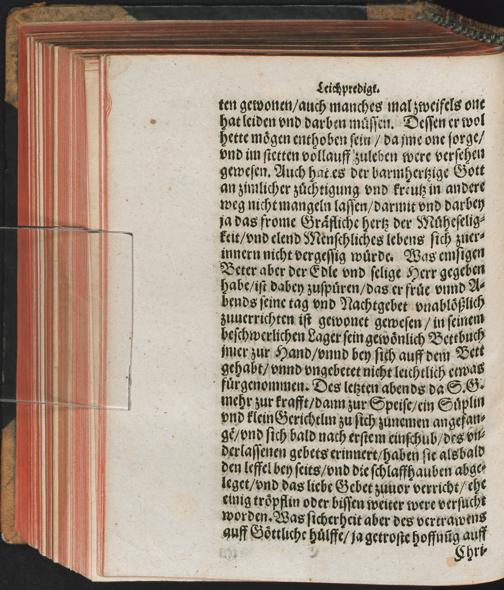 Leichpredigt.
ten gewonen/auch manches mal zweifels one
hat leiden vnd darben müssen. Dessen er wol
hette mögen enthoben sein / da jme one sorge/
vnd in stetten vollauff zuleben were versehen
gewesen. Auch hat es der barmhertzige Gott
an zimlicher züchtigung vnd kreutz in andere
weg nicht mangeln lassen/darmit vnd darbey
ja das frome Gräfliche hertz der Müheselig-
keit/vnd elend Menschliches lebens sich zuer-
innern nicht vergessig würde. Was emsigen
Beter aber der Edle vnd selige Herr gegeben
habe/ist dabey zuspüren/das er früe vnnd A-
bends seine tag vnd Nachtgebet vnablößlich
zuuerrichten ist gewonet gewesen / in seinem
beschwerlichen Lager sein gewönlich Bettbuch
jmer zur Hand/vnnd bey sich auff dem Bett
gehabt/vnnd vngebetet nicht leichtlich etwas
fürgenommen. Des letzten abends da S.G.
mehr zur krafft/dann zur Speise/ein Süplin
vnd klein Gerichtlin zu sich zunemen angefan-
gē/vnd sich bald nach erstem einschub/des vn-
derlassenen gebets erinnert/haben sie alsbald
den leffel bey seits/vnd die schlaffhauben abge-
leget/vnd das liebe Gebet zuuor verricht/ehe
einig tröpflin oder bissen weiter were versucht
worden. Was sicherheit aber des vertrawens
auff Göttliche hülffe/ja getroste hoffnūg auff
Chri-